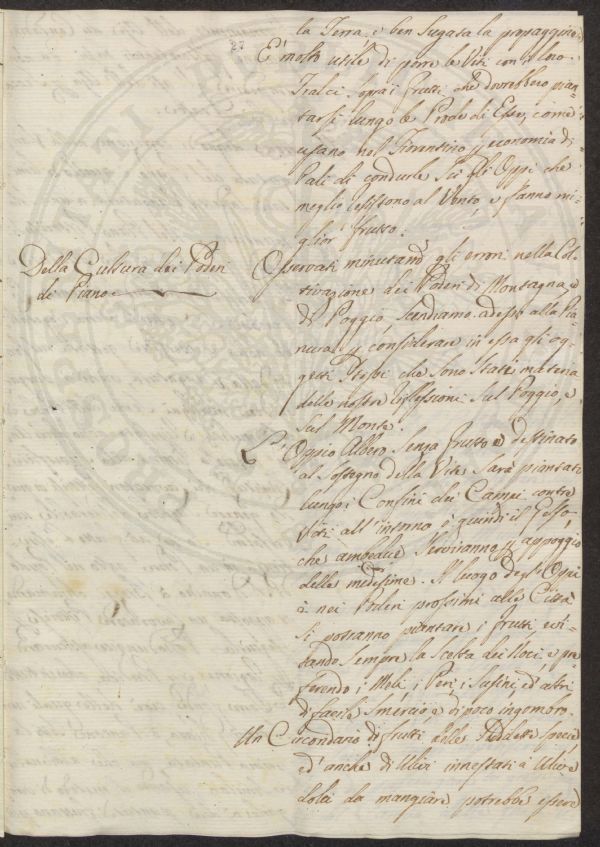 27
la Terra, e ben sugata la propaggine
E' molto utile di porre le Viti con i loro
Tralci sopra i frutti che dovrebbero pian-
tarsi lungo le Prode di Esse, come
usano nel Fiorentino p economia di
Pali di condurle su gli Oppi che
meglio resistono al Vento, e fanno mi-
glior frutto.
Della Cultura dei Poderi
di Piano
Osservati minutam. gli errori nella Col-
tivazione dei Poderi di Montagna, e
di Poggio, scendiamo adesso alla Pia-
nura p considerare in essa gli og-
getti stessi che sono stati materia
delle nostre riflessioni sul Poggio, e
sul Monte.
L'Oppio Albero senza frutto e destinato
al sostegno della Vite sarà piantato
lungo i Confini dei Campi contro
Vôti all'intorno è quindi il
che ambedue serviranno p appoggio
delle medesime. In luogo degl'Oppi
ò nei Poderi prossimi alle Città
si possanno piantare i frutti evi-
tando sempre la scelta dei Noci, e pre-
ferendo i Meli, i Peri, i Susini, ed altri
di facile smercio, e di poco ingombro.
Un Circondario di frutti delle suddette specie
ed anche di Ulivi innestati à Ulive
dolci da mangiare potrebbe essere